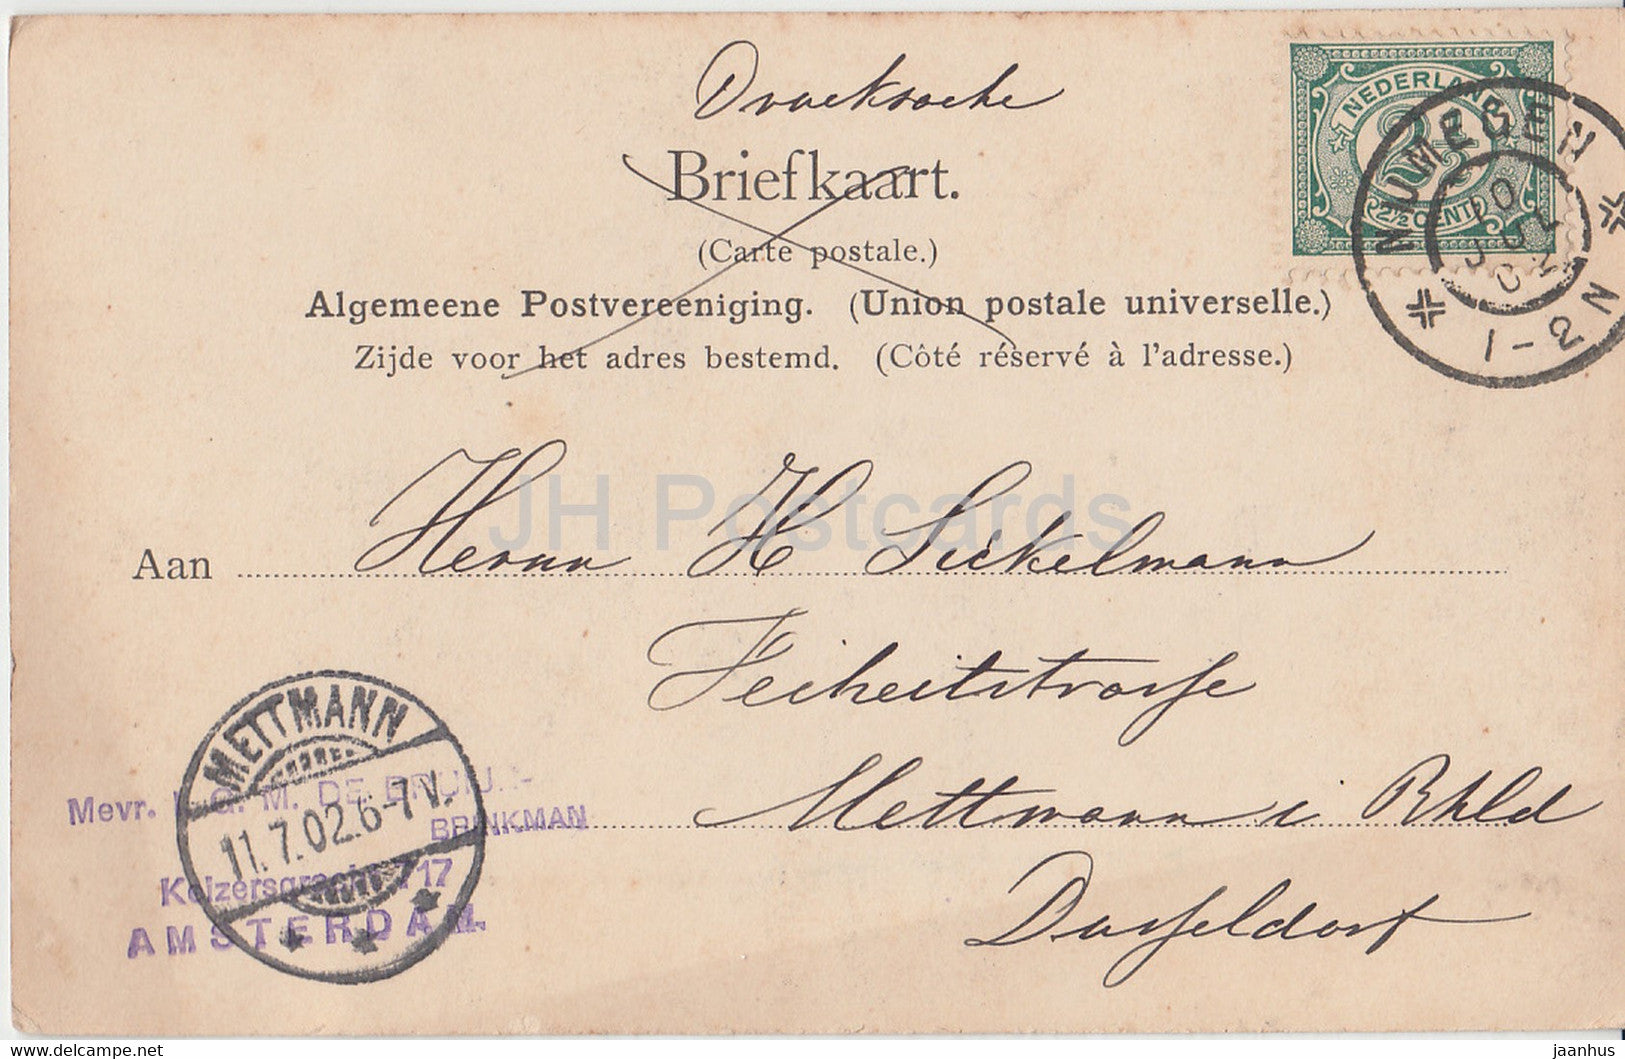 Drucksache
Briefkaart.
(Carte postale.)
Algemeene Postvereeniging. (Union postale universelle.)
Zijde voor het adres bestemd. (Côté réservé à l'adresse.)
NEDERLAND
2½
2½ CENT
NIJMEGEN
10 JUL 02
1-2N
JH Postcards
Aan Herrn H Sickelmann
Freiheitstrasse
Mettmann i Rhld
Dusseldorf
METTMANN
11.7.02.6-7V.
Mevr. G. M. DE BRUIJN-
BRINKMAN
Keizersgracht 717
AMSTERDAM.
delcampe.net
jaanhus